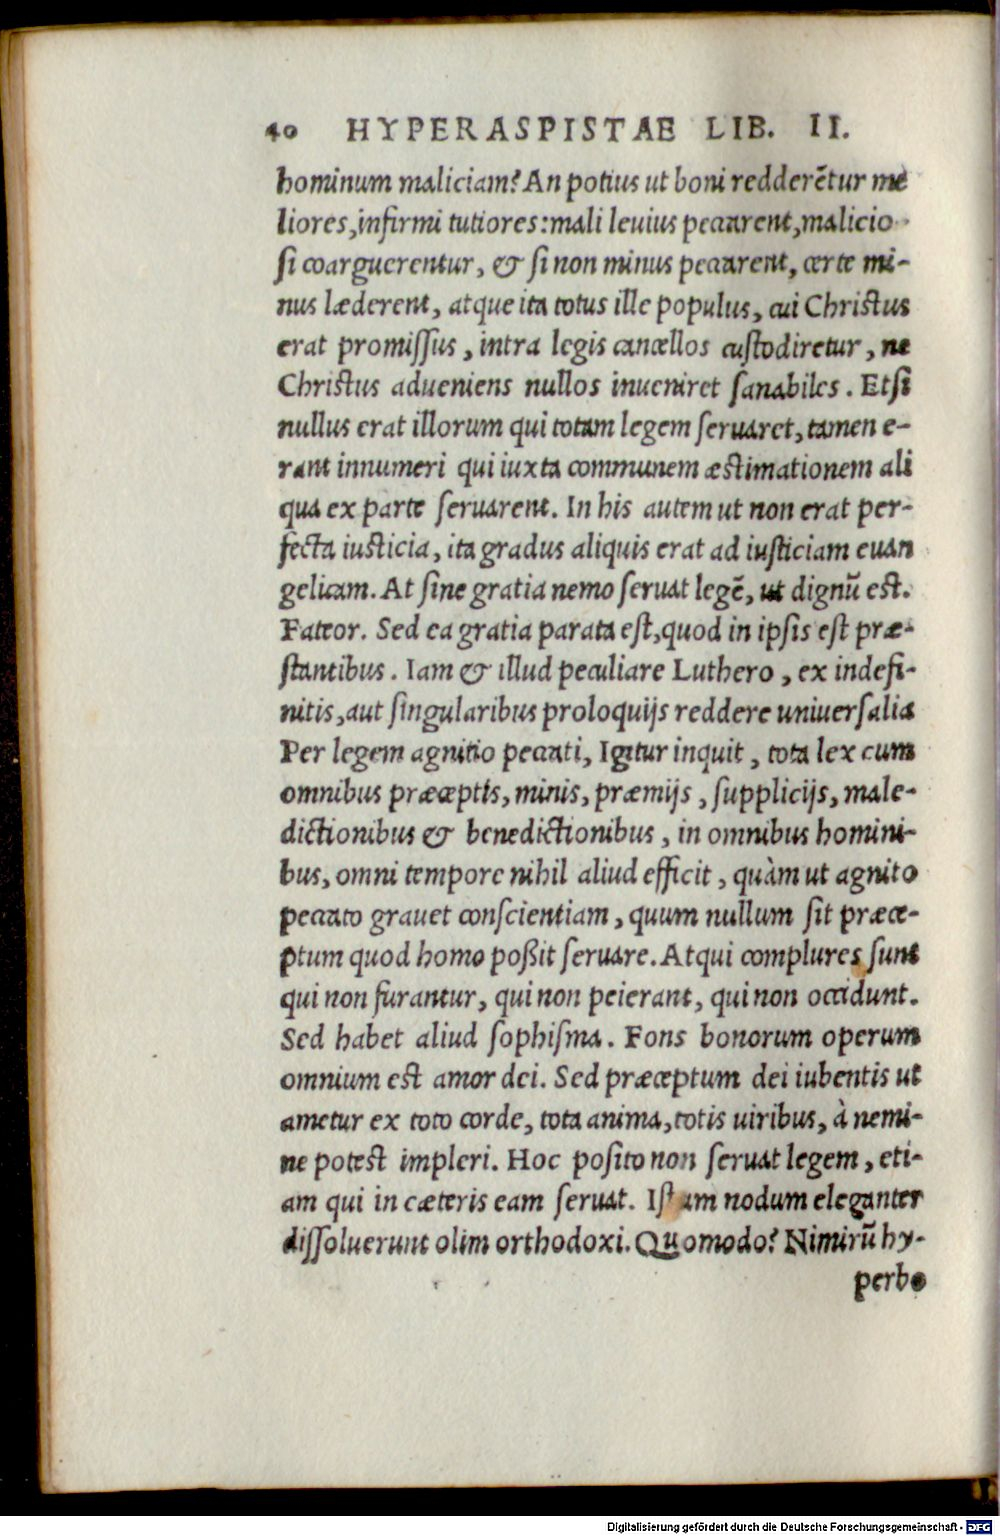 40 HYPERASPISTAE LIB. II.
hominum maliciam? An potius ut boni redderẽtur me
liores, infirmi tutiores: mali leuius peccarent, malicio-
ſi coarguerentur, & ſi non minus peccarent, certe mi-
nus læderent, atque ita totus ille populus, cui Chriſtus
erat promiſſus, intra legis cancellos cuſtodiretur, ne
Chriſtus adueniens nullos inueniret ſanabiles. Etſi
nullus erat illorum qui totam legem ſeruaret, tamen e-
rant innumeri qui iuxta communem æſtimationem ali
qua ex parte ſeruarent. In his autem ut non erat per-
fecta iuſticia, ita gradus aliquis erat ad iuſticiam euan
gelicam. At ſine gratia nemo ſeruat legẽ, ut dignũ eſt.
Fateor. Sed ea gratia parata eſt, quod in ipſis eſt præ-
ſtantibus. Iam & illud peculiare Luthero, ex indefi-
nitis, aut ſingularibus proloquijs reddere uniuerſalia
Per legem agnitio peccati, Igitur inquit, tota lex cum
omnibus præceptis, minis, præmijs, ſupplicijs, male-
dictionibus & benedictionibus, in omnibus homini-
bus, omni tempore nihil aliud efficit, quàm ut agnito
peccato grauet conſcientiam, quum nullum ſit præce-
ptum quod homo poßit ſeruare. Atqui complures ſunt
qui non furantur, qui non peierant, qui non occidunt.
Sed habet aliud ſophiſma. Fons bonorum operum
omnium eſt amor dei. Sed præceptum dei iubentis ut
ametur ex toto corde, tota anima, totis uiribus, à nemi-
ne poteſt impleri. Hoc poſito non ſeruat legem, eti-
am qui in cæteris eam ſeruat. Iſtam nodum eleganter
diſſoluerunt olim orthodoxi. Quomodo? Nimirũ hy-
perbo
Digitalisierung gefördert durch die Deutsche Forschungsgemeinschaft - DFG